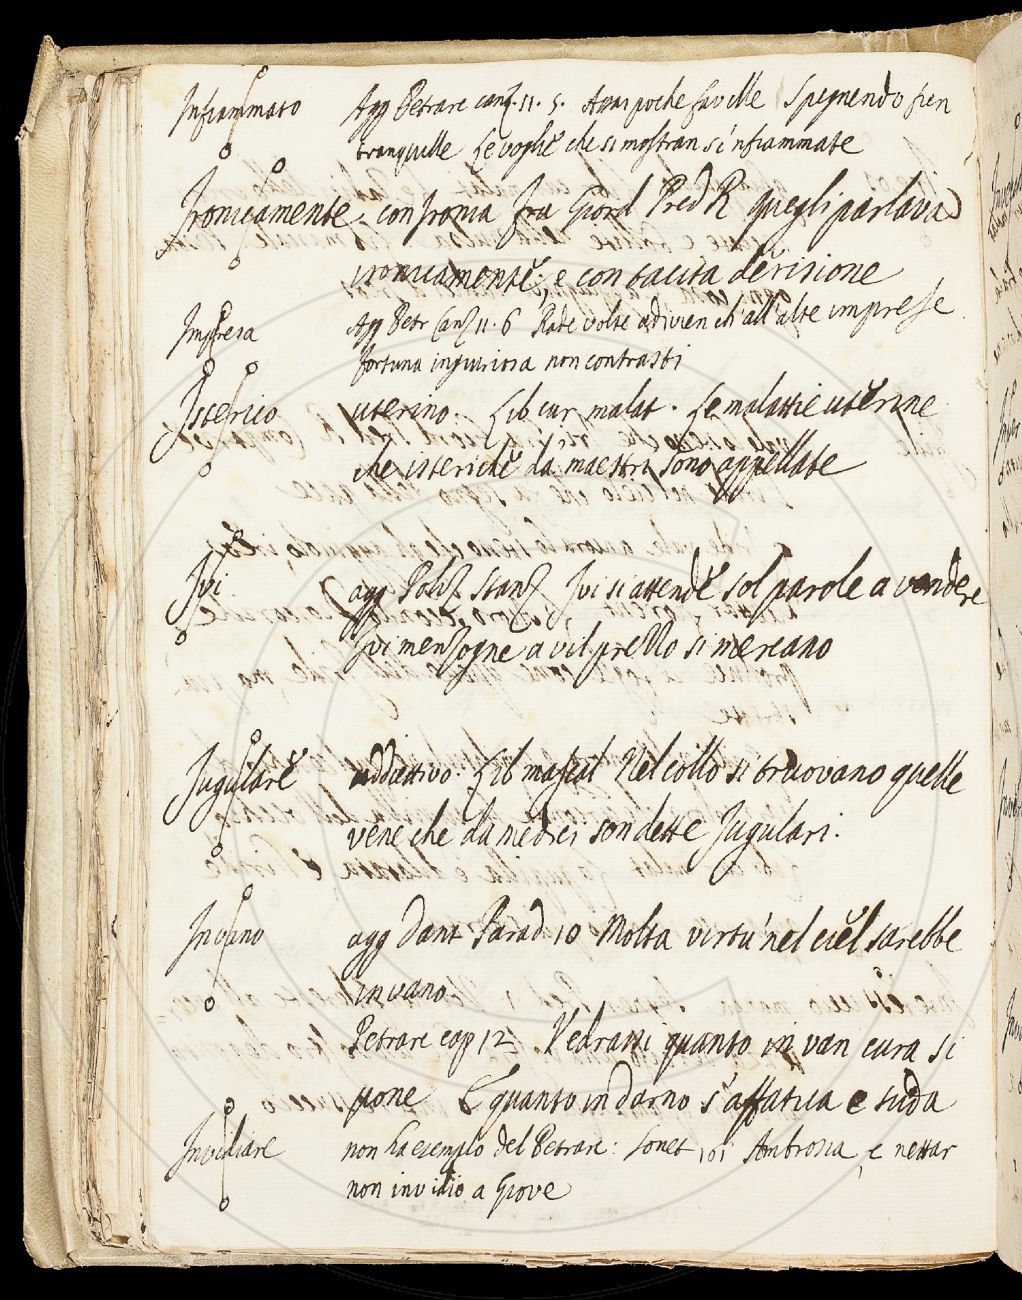 Infiammato Agg Petrarc canz. 11. 5. Assai poche faville Spegnendo fien
tranquille Le voglie che si mostran sì 'nfiammate
Ironicamente. con Ironia Fra Giord Pred R quegli parlava
ironicamente, e con tacita derisione
Impresa Agg Petr Canz 11. 6 Rade volte adivien ch all' alte imprese
fortuna ingiuriosa non contrasti
Isterico uterino. Lib cur malat. Le malattie uterine
che isteriche da maestri sono appellate
Ivi agg. Poliz Stanz Ivi si attende sol parole a vendere
Ivi menzogne a vil prezzo si mercano
Jugulare addiettivo. Lib mascal Nel collo si truovano quelle
vene che da medici son dette Jugulari.
Invano agg Dant Parad 10 Molta virtù nel ciel sarebbe
invano
Petrarc cap 12 Vedrassi quanto in van cura si
pone E quanto indarno s'affatica e suda
Invidiare non ha esempio del Petrarc: Sonet 161 Ambrosia, e nettar
non invidio a Giove